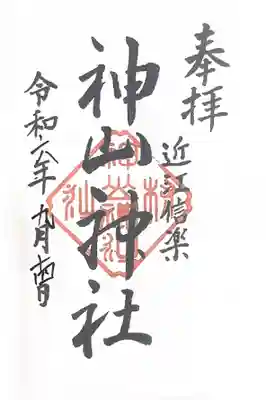 奉拝
近江信楽
神山神社
令和六年九月